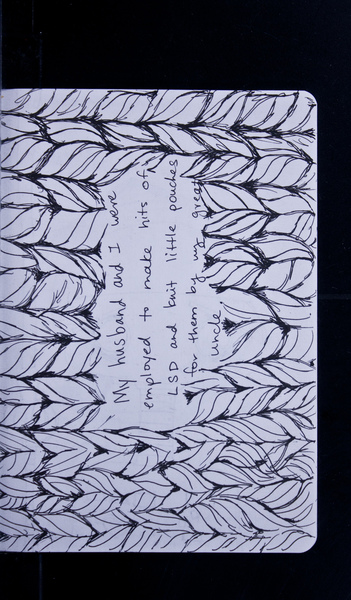 My husband and I were
employed to make hits of
LSD and knit little pouches
for them by my great
uncle.